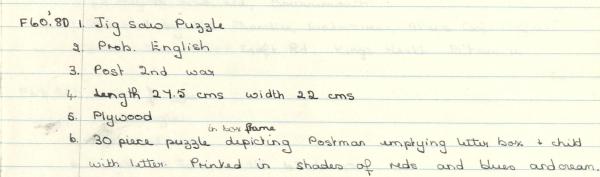 F60'.8D 1. Jig saw Puzzle
2. Prob. English
3. Post 2nd war
4. Length 27.5 cms width 22 cms
5. Plywood
in box frame
6. 30 piece puzzle depicting Postman emptying letter box + child
with letter. Printed in shades of reds and blues and cream.